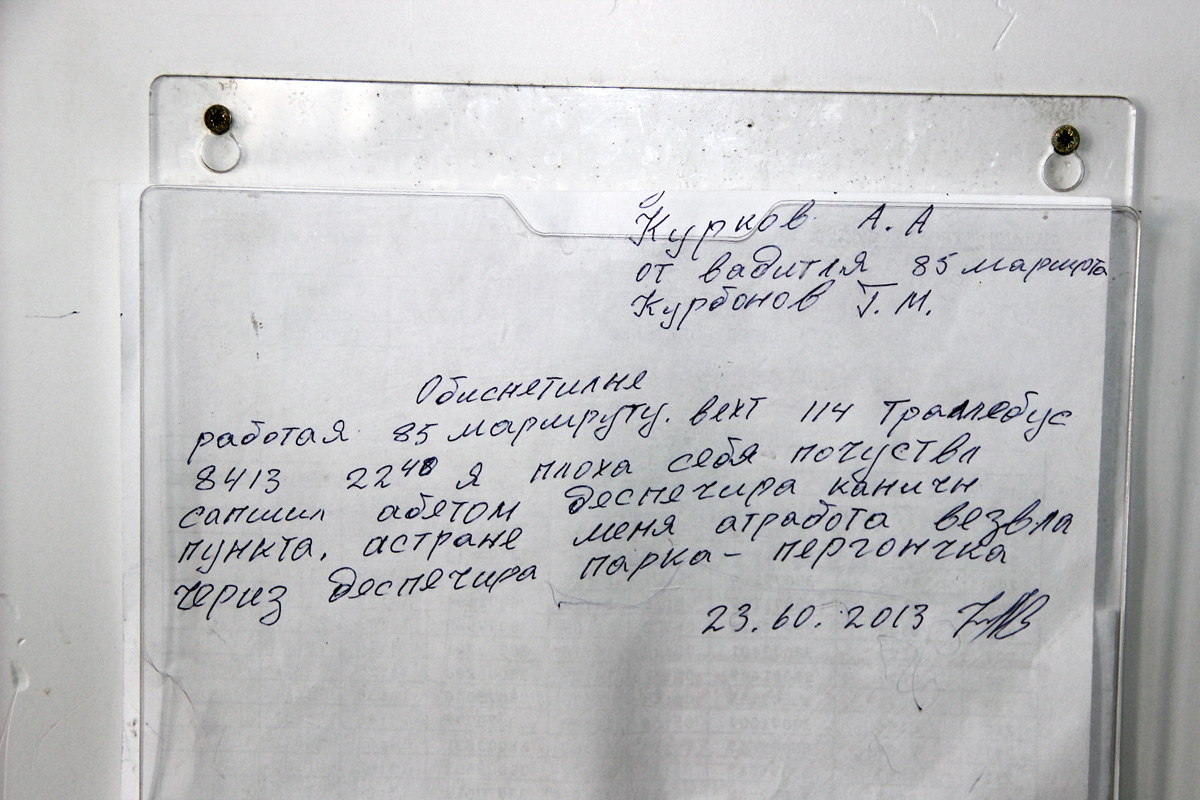 Курков А.А
от вадитля 85 маршрта
Курбонов Т.М.
Обиснетилне
работая 85 маршруту. вехт 114 Траллебус
8413 2240 я плоха себя почуствл
сапшил абетом деспечира каничн
пункта. астране меня атработа везвла
через деспечира парка - пергончка
23.60.2013